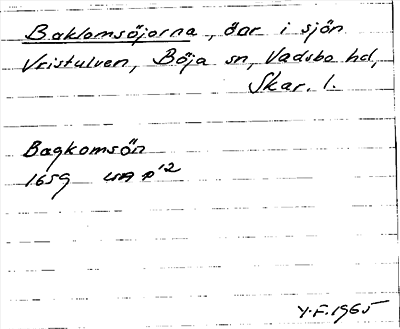 Baklomsöjorna, öar i sjön
Vristulven, Böja sn, Vadsbo hd,
Skar. l.
Bagkomsön
1659 LMA P12
Y.F. 1965